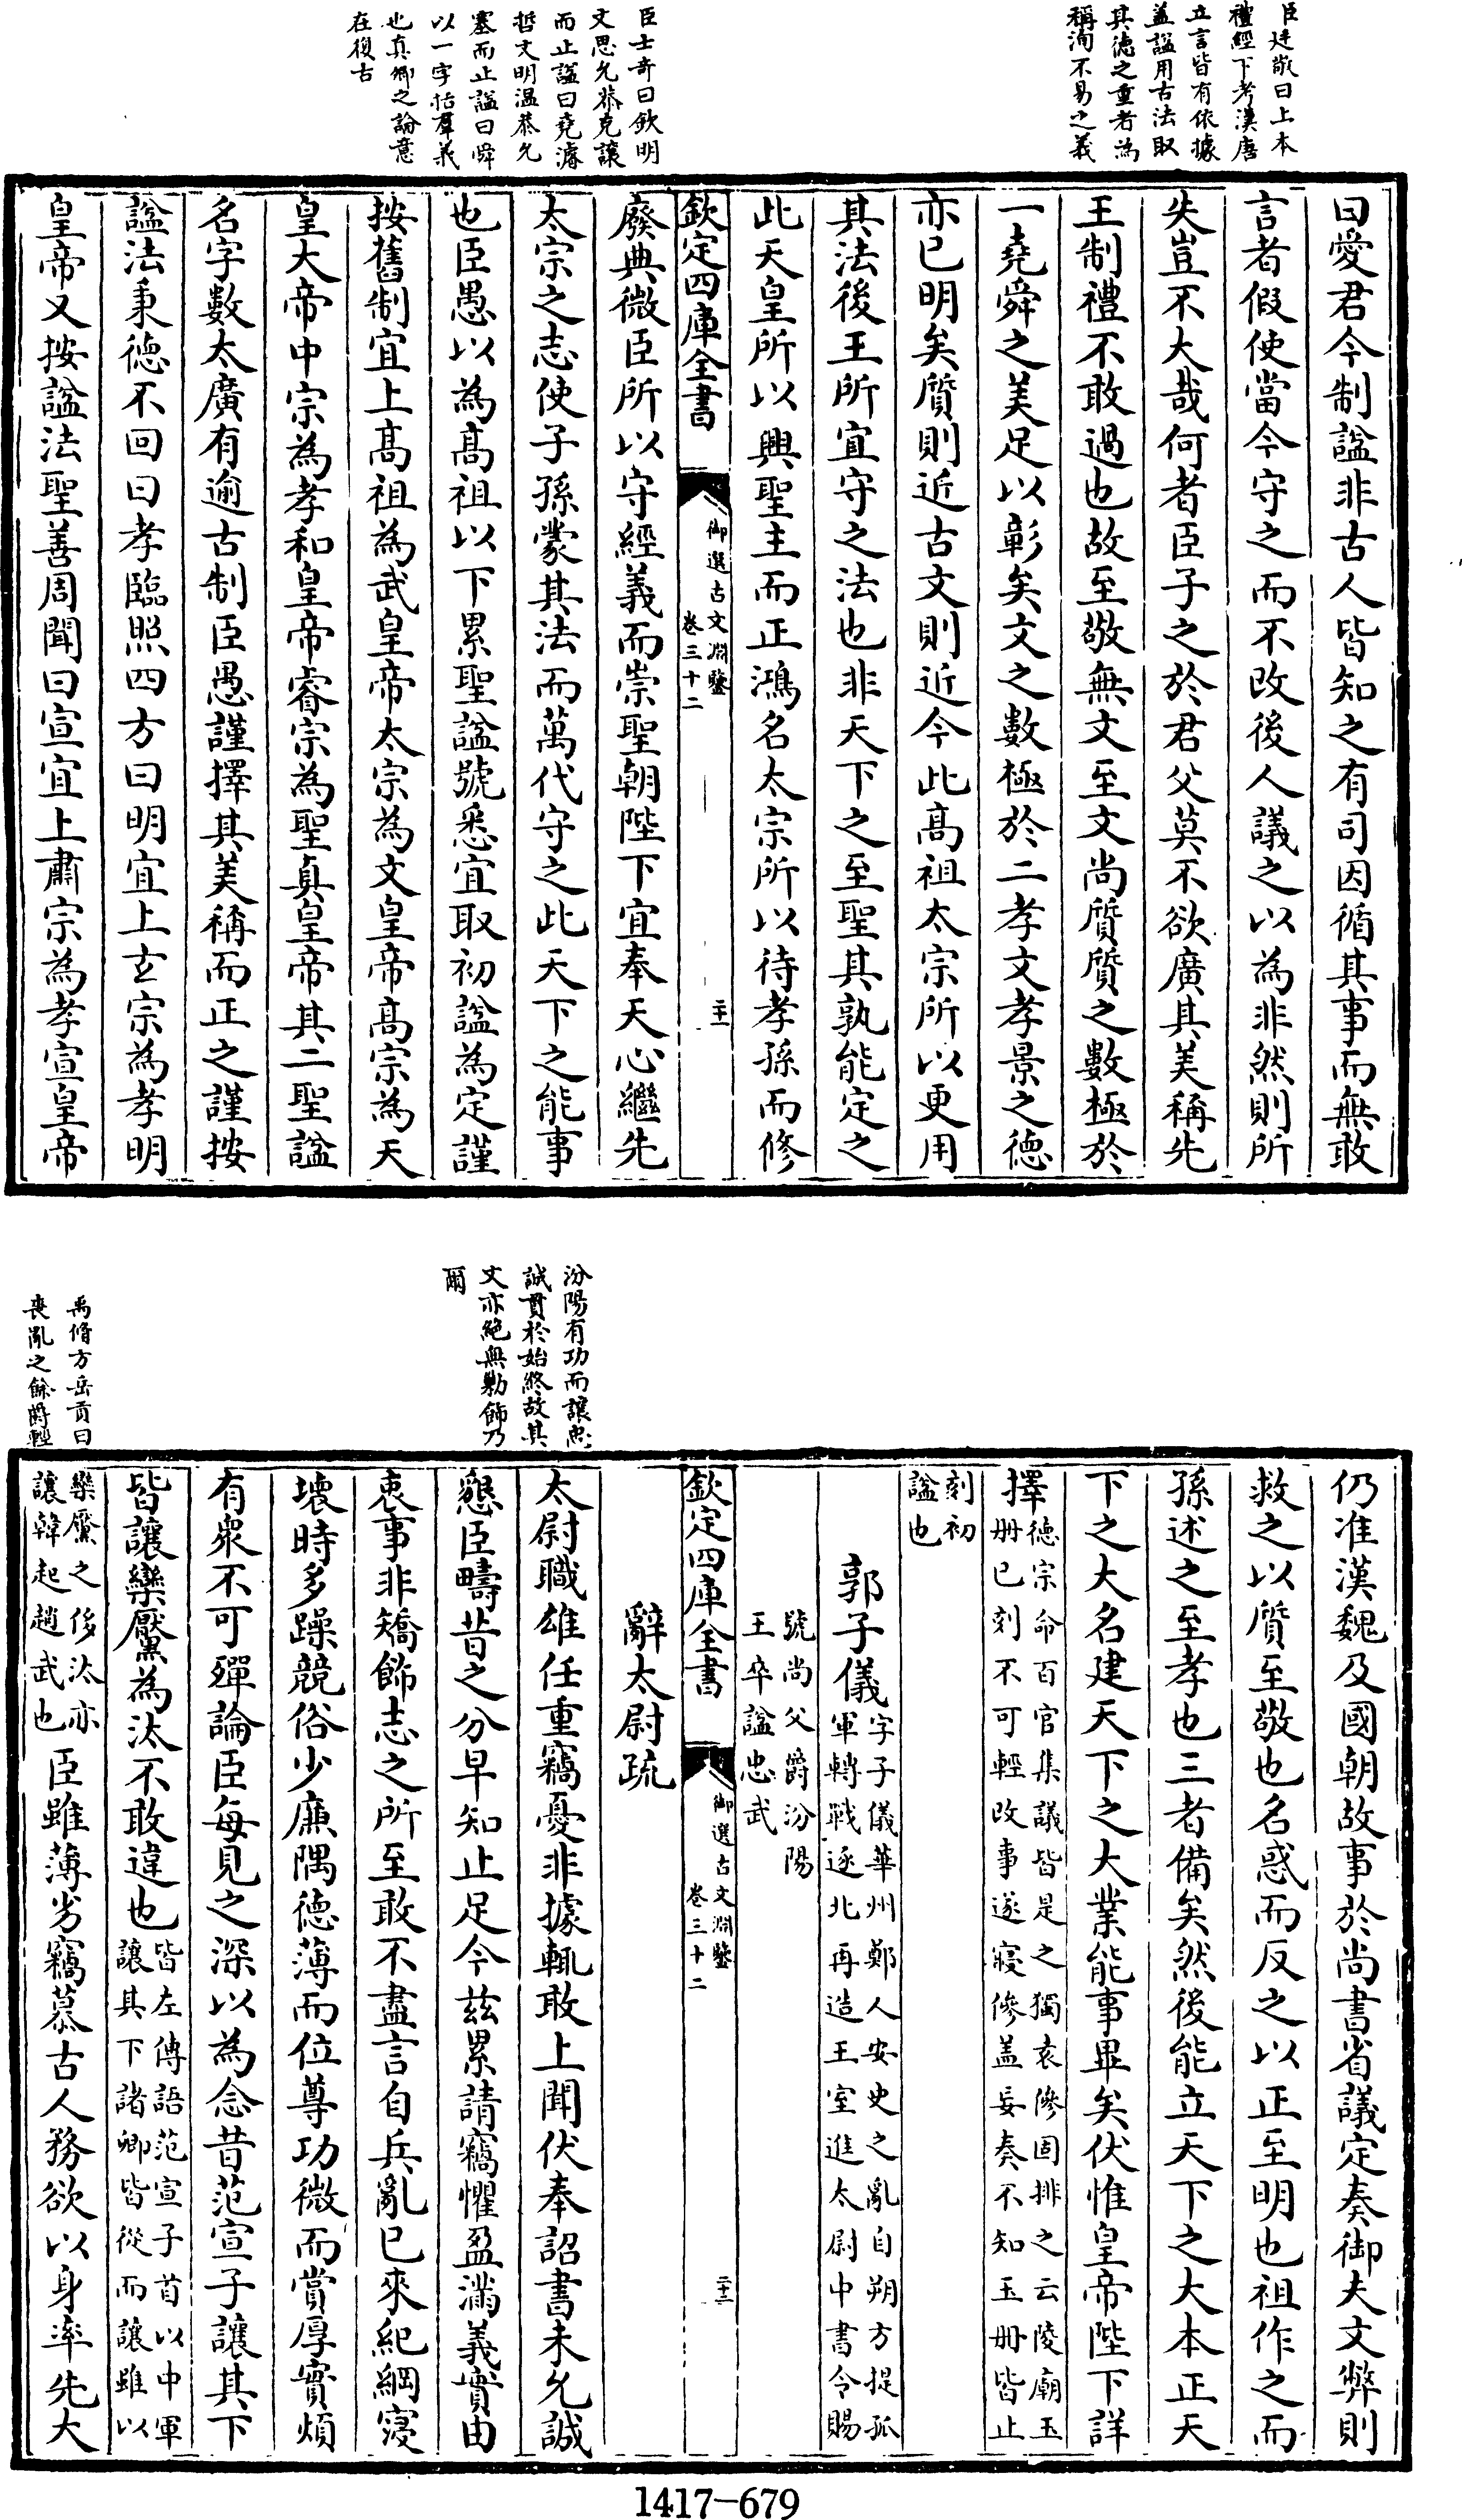 臣廷敬曰上本
禮經下考漢唐
立言皆有依據
蓋諡用古法取
其德之重者為
稱洵不易之義
臣士奇曰欽明
文思允恭克讓
而止諡曰堯濬
哲文明溫恭允
塞而止諡曰舜
以一字括羣義
也真卿之論意
在復古
曰愛君今制諡非古人皆知之有司因循其事而無敢
言者假使當今守之而不改後人議之以為非然則所
失豈不大哉何者臣子之於君父莫不欲廣其美稱先
王制禮不敢過也故至敬無文至文尚質質之數極於
一堯舜之美足以彰矣文之數極於二孝文孝景之德
亦已明矣質則近古文則近今此髙祖太宗所以更用
其法後王所宜守之法也非天下之至聖其孰能定之
此天皇所以興聖主而正鴻名太宗所以待孝孫而修
欽定四庫全書
御選古文淵鑒
卷三十二
二十一
廢典微臣所以守經義而崇聖朝陛下宜奉天心繼先
太宗之志使子孫蒙其法而萬代守之此天下之能事
也臣愚以為髙祖以下累聖諡號悉宜取初諡為定謹
按舊制宜上髙祖為武皇帝太宗為文皇帝髙宗為天
皇大帝中宗為孝和皇帝睿宗為聖真皇帝其二聖諡
名字數太廣有逾古制臣愚謹擇其美稱而正之謹按
諡法秉德不回曰孝臨照四方曰明宜上玄宗為孝明
皇帝又按諡法聖善周聞曰宣宜上肅宗為孝宣皇帝
汾陽有功而讓忠
誠貫於始終故其
文亦絕無勦飾乃
爾
禹脩方岳貢曰
喪亂之餘爵輕
仍准漢魏及國朝故事於尚書省議定奏御夫文弊則
救之以質至敬也名惑而反之以正至明也祖作之而
孫述之至孝也三者備矣然後能立天下之大本正天
下之大名建天下之大業能事畢矣伏惟皇帝陛下詳
擇
德宗命百官集議皆是之獨袁傪固排之云陵廟玉
册已刻不可輕改事遂寢傪盖妄奏不知玉册皆止
刻初
諡也
郭子儀
字子儀華州鄭人安史之亂自朔方提孤
軍轉戰逐北再造王室進太尉中書令賜
號尚父爵汾陽
王卒諡忠武
欽定四庫全書
御選古文淵鑒
卷三十二
二十二
辭太尉疏
太尉職雄任重竊憂非據輒敢上聞伏奉詔書未允誠
懇臣疇昔之分早知止足今茲累請竊懼盈滿義實由
衷事非矯飾志之所至敢不盡言自兵亂已來紀綱寖
壞時多躁競俗少廉隅德薄而位尊功微而賞厚實煩
有衆不可殫論臣每見之深以為念昔范宣子讓其下
皆讓欒黶為汰不敢違也
皆左傳語范宣子首以中軍
讓其下諸卿皆從而讓雖以
欒黶之侈汰亦
讓韓起趙武也
臣雖薄劣竊慕古人務欲以身率先大
1417-679